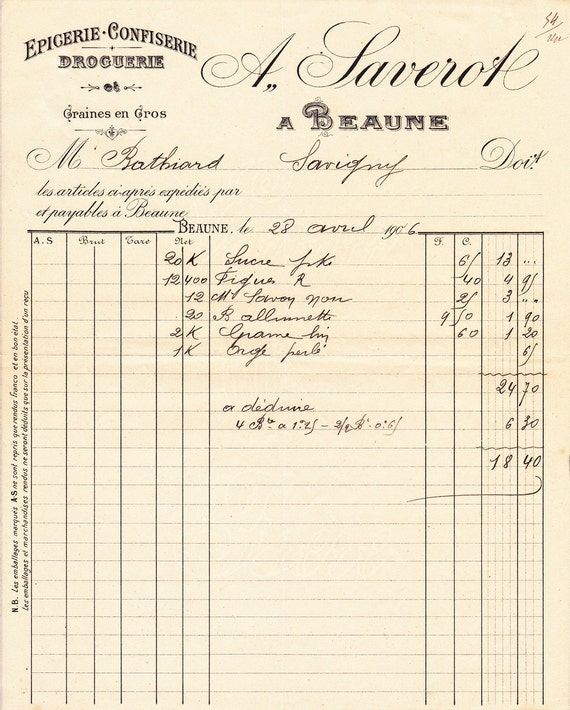 EPICERIE · CONFISERIE
DROGUERIE
et
Graines en Gros
A,, Saverot
A BEAUNE
54
M Bathiard Savigny Doit
les articles ci-après expédiés par
et payables à Beaune
BEAUNE, le 28 avril 1906
A.S Brut Tare Net F. C.
20 K Sucre 65 13 "
12 400 Figues R 40 4 95
12 Savon 25 3 "
20 B allumette 9 50 1 90
2 K Graine lin 60 1 20
1 K Orge perlé 65
24 70
a déduire
4 a 1.25 - 6 30
18 40
N.B. Les emballages marqués A·S ne sont repris que rendus franco et en bon état.
Les emballages et marchandises rendus ne seront déduits que sur la présentation d'un reçu